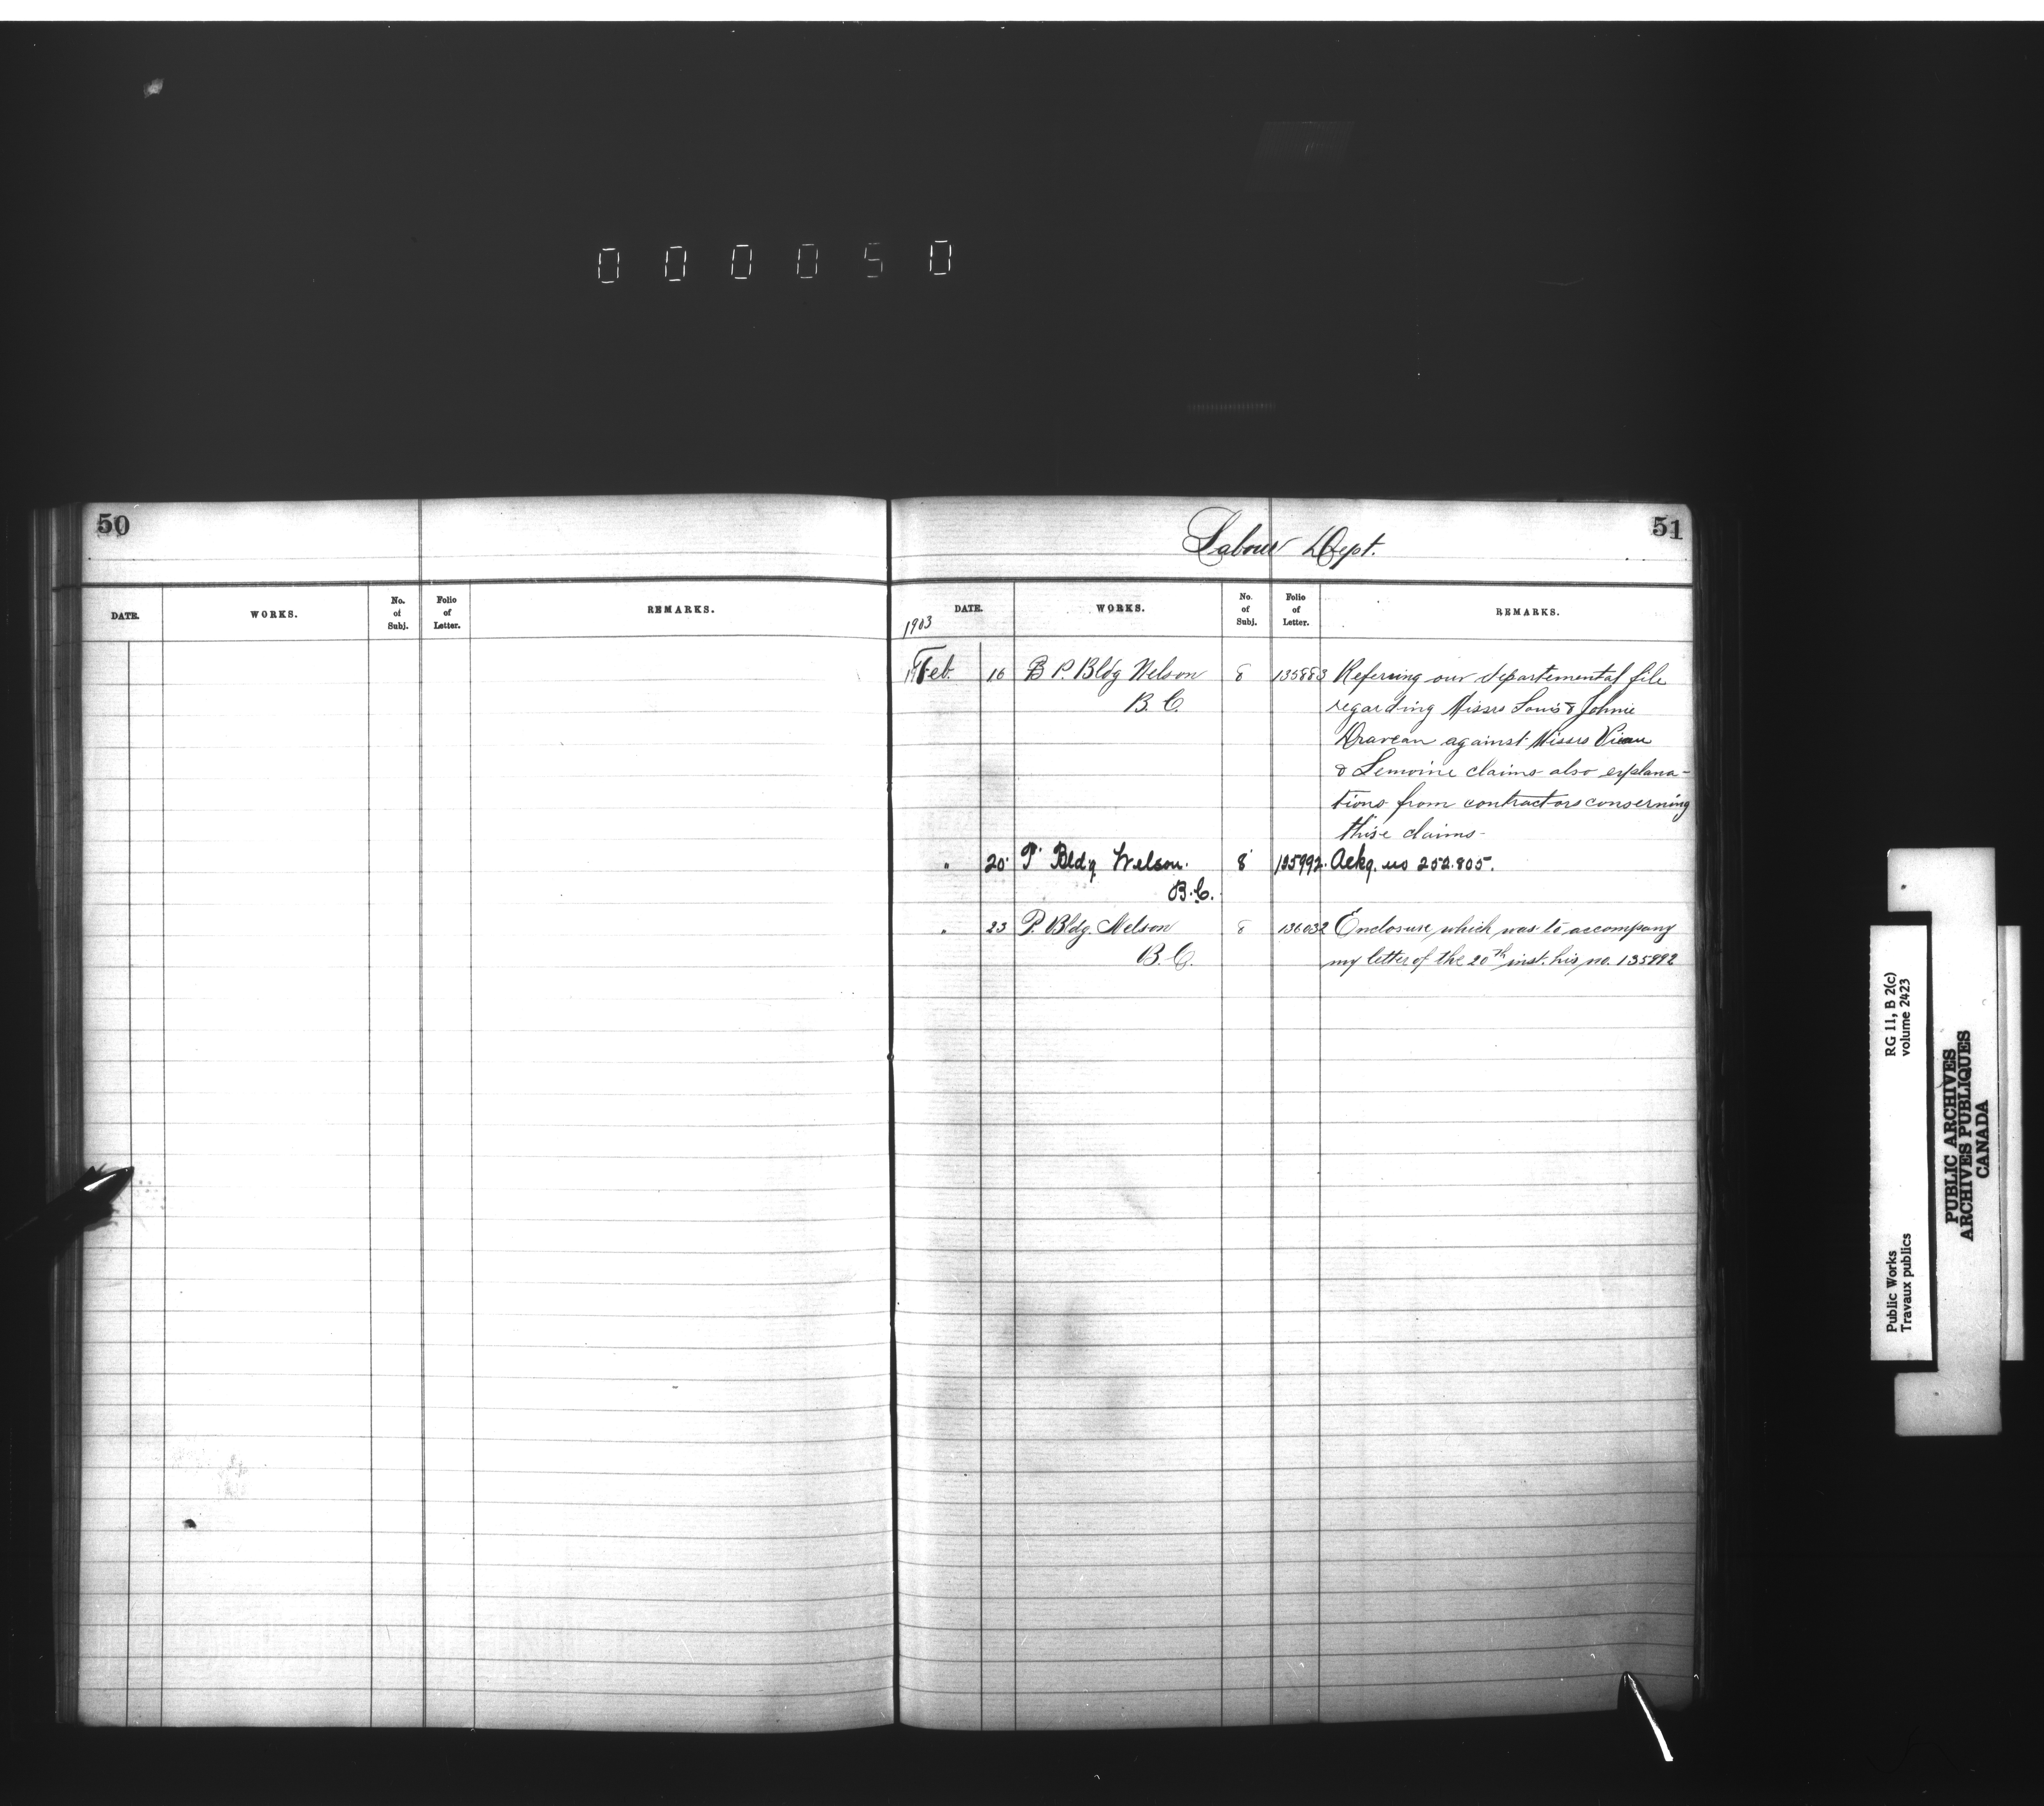 000050
50
DATE. WORKS. No. of Subj. Folio of Letter. REMARKS.
51
Labour Dept.
DATE. WORKS. No. of Subj. Folio of Letter. REMARKS.
1903
Feb. 16 P. Bldg Nelson 8 135883 Referring our departemental file
B.C. regarding Missrs Louis & Johnie
against Missrs Viau
& Lemoine claims also explana-
tions from contractors conserning
thise claims-
" 20 P. Bldg Nelson. 8 135992. Ackg. no 252.805.
B.C.
" 23 P. Bldg. Nelson 8 136032 Enclosure which was to accompany
B.C. my letter of the 20th inst. his no. 135992
RG 11, B 2(c)
volume 2423
Public Works
Travaux publics
PUBLIC ARCHIVES
ARCHIVES PUBLIQUES
CANADA